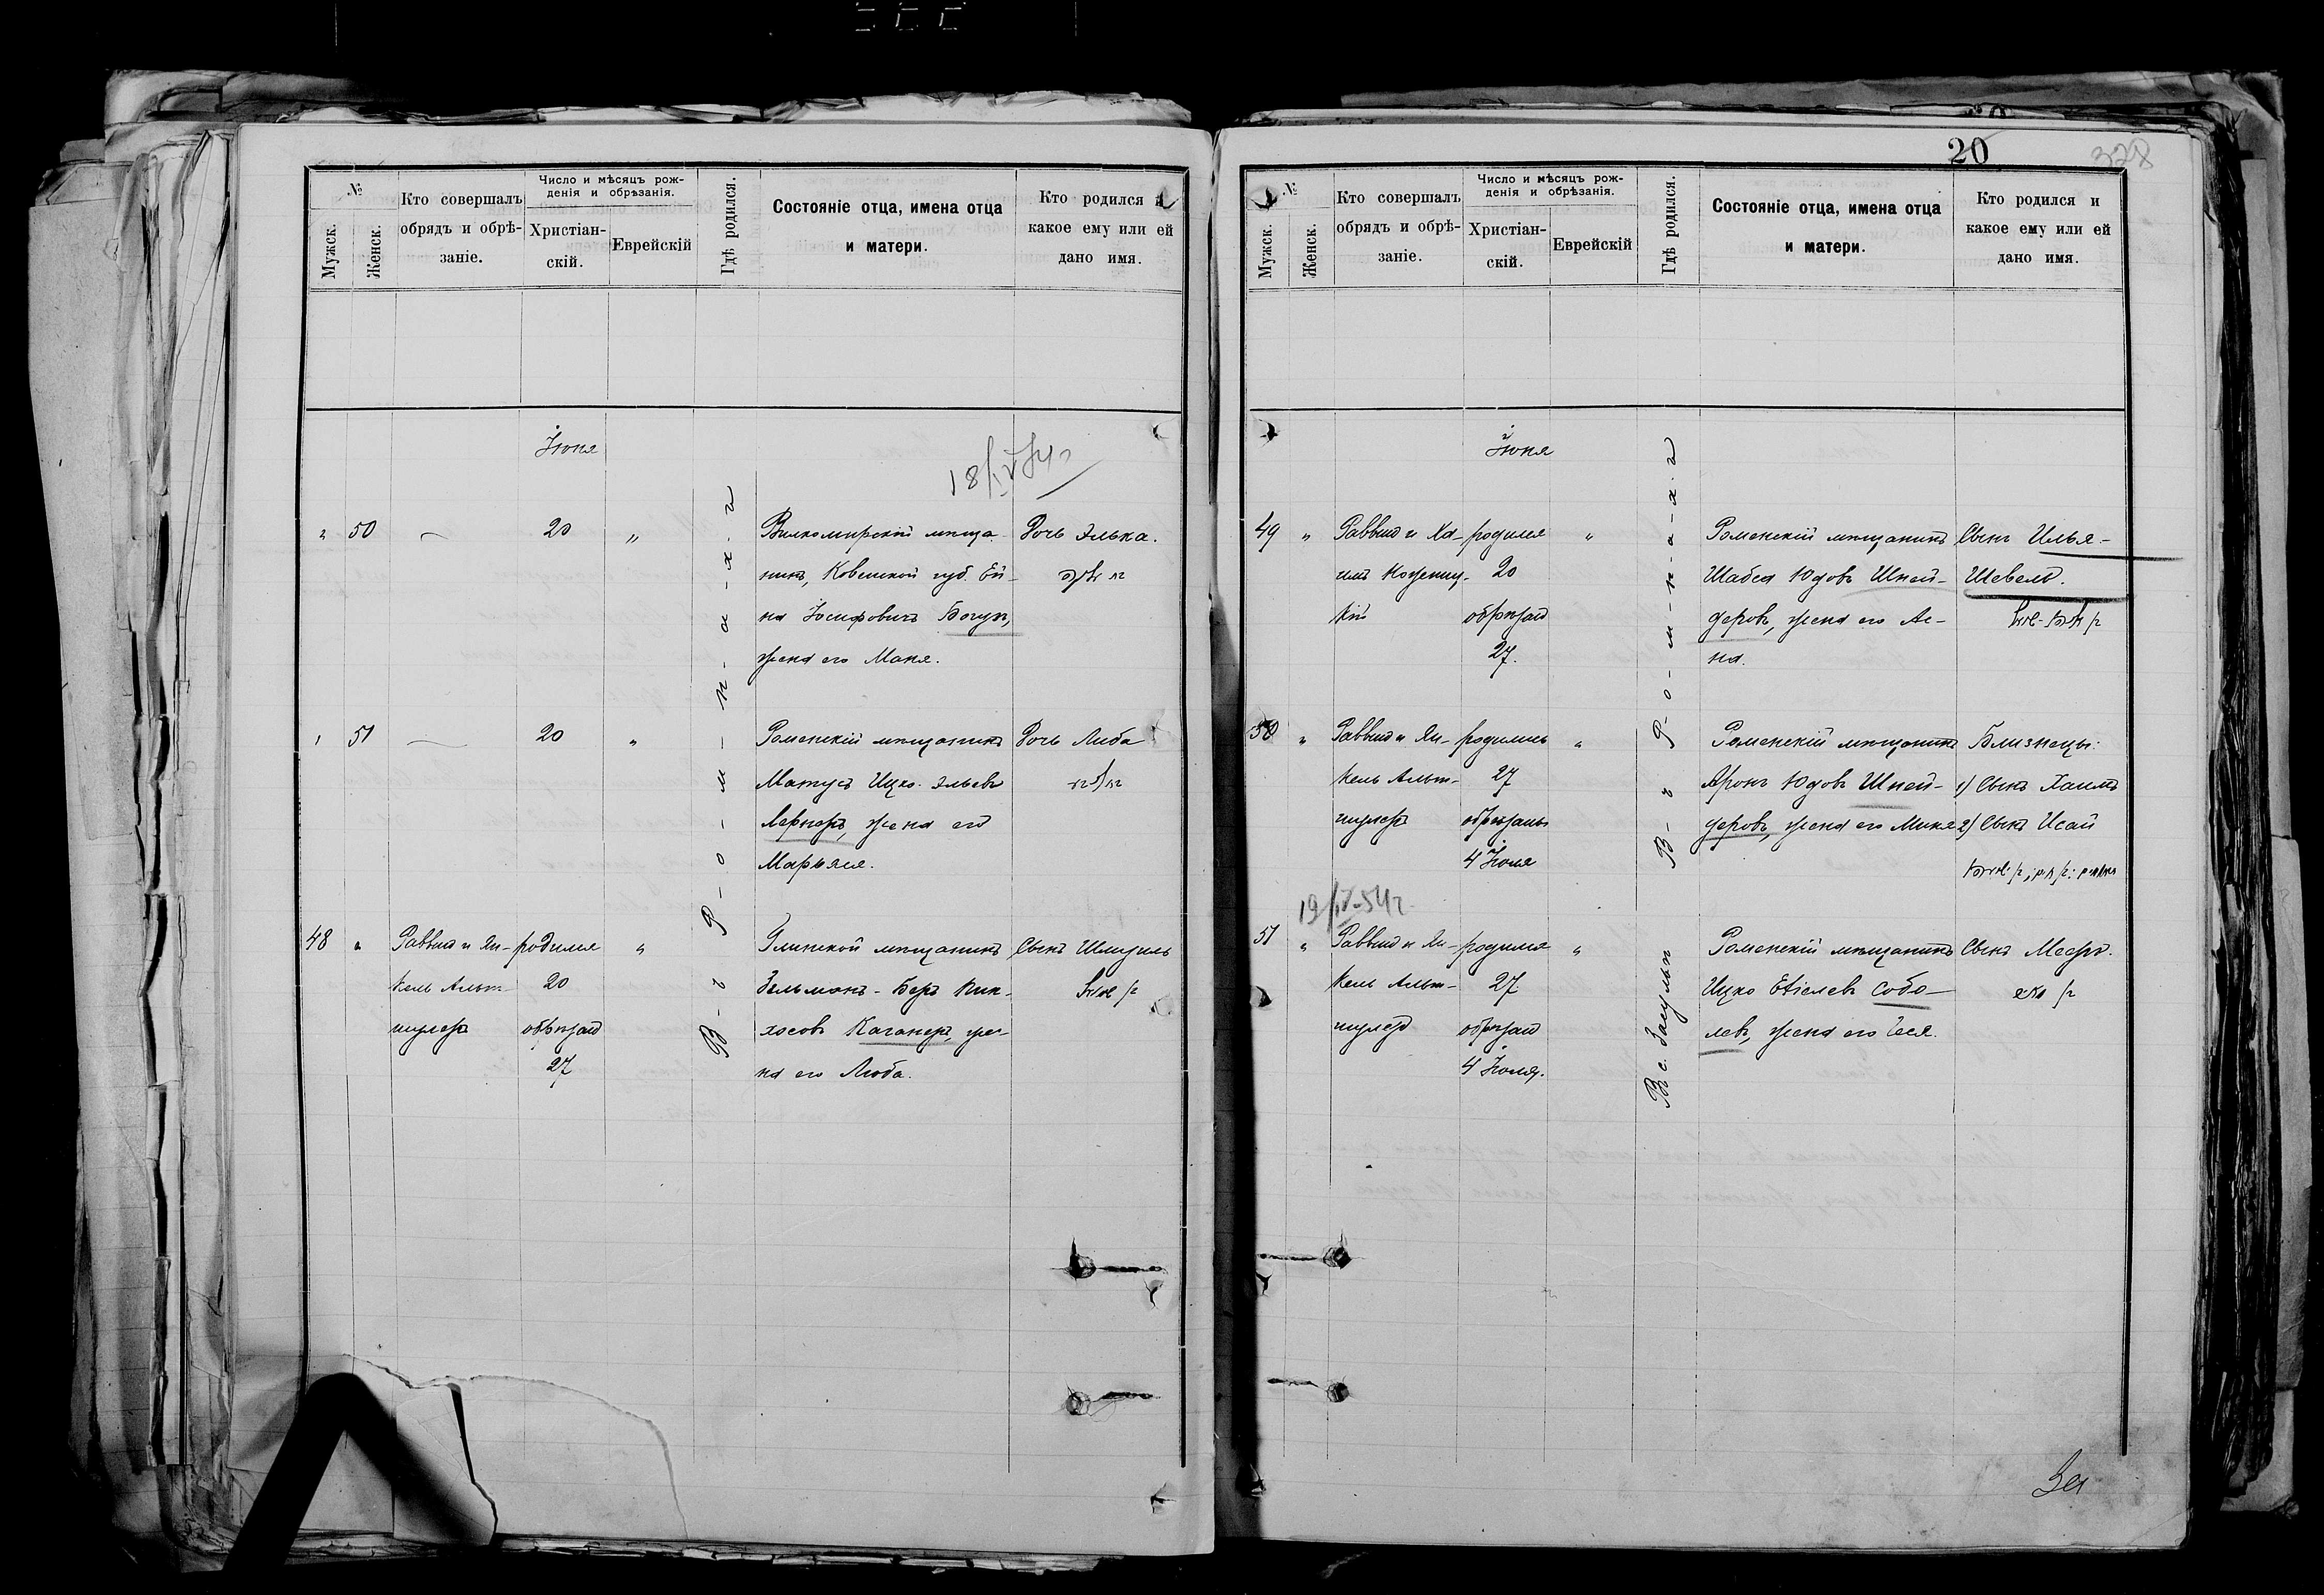 №
Мужск.
Женск.
Кто совершалъ
обрядъ и обрѣ-
заніе.
Число и мѣсяцъ рож-
денія и обрѣзанія.
Христіан-
скій.
Еврейскій
Гдѣ родился.
Состояніе отца, имена отца
и матери.
Кто родился и
какое ему или ей
дано имя.
Іюня
50
20
"
Вилкомирскій мѣща-
нинъ, Ковенской губ. Ей-
на Іосифовичъ Богун,
жена его Маня.
Дочь Элька.
51
20
"
Роменскій мѣщанинъ
Матусъ Ицко-Эльевъ
Лернеръ, жена его
Марьяся.
Дочь Либа
48
"
Раввинъ и Ян-
кель Альт-
шулеръ
родился
20
обрѣзанъ
27
"
Глинской мѣщанинъ
Зельманъ-Беръ Пин-
хосовъ Каганеръ, же-
на его Люба.
Сынъ Шмуль
В-ъ Р-о-м-н-а-х-ъ
20
328
№
Мужск.
Женск.
Кто совершалъ
обрядъ и обрѣ-
заніе.
Число и мѣсяцъ рож-
денія и обрѣзанія.
Христіан-
скій.
Еврейскій
Гдѣ родился.
Состояніе отца, имена отца
и матери.
Кто родился и
какое ему или ей
дано имя.
Іюня
49
"
Раввинъ и Ха-
имъ Кожениц-
кій
родился
20
обрѣзанъ
27.
"
Роменскій мѣщанинъ
Шабса Юдовъ Шней-
деровъ, жена его Ас-
на.
Сынъ Илья-
Шевель.
50
"
Раввинъ и Ян-
кель Альт-
шулеръ
родились
27
обрѣзаны
4 Іюля
"
Роменскій мѣщанинъ
Аронъ Юдовъ Шней-
деровъ, жена его Миня
Близнецы:
1) Сынъ Хаимъ
2) Сынъ Исай
51
"
Раввинъ и Ян-
кель Альт-
шулеръ
родился
27
обрѣзанъ
4 Іюля.
"
Роменскій мѣщанинъ
Ицко Евіелевъ Собо-
левъ, жена его Геся.
Сынъ Мееръ.
В-ъ Р-о-м-н-а-х-ъ
Въ с. Засульи
За